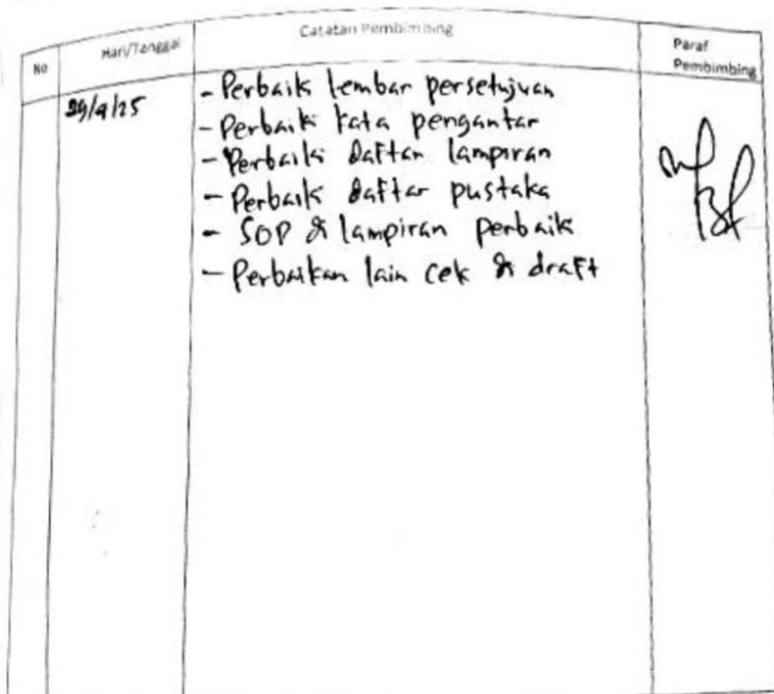 No
Hari/Tanggal
Catatan Pembimbing
Paraf
Pembimbing
29/9/25
- Perbaik lembar persetujuan
- Perbaiki kata pengantar
- Perbaiki Daftar lampiran
- Perbaik daftar pustaka
- SOP di lampiran perbaik
- Perbaikan lain cek di draft